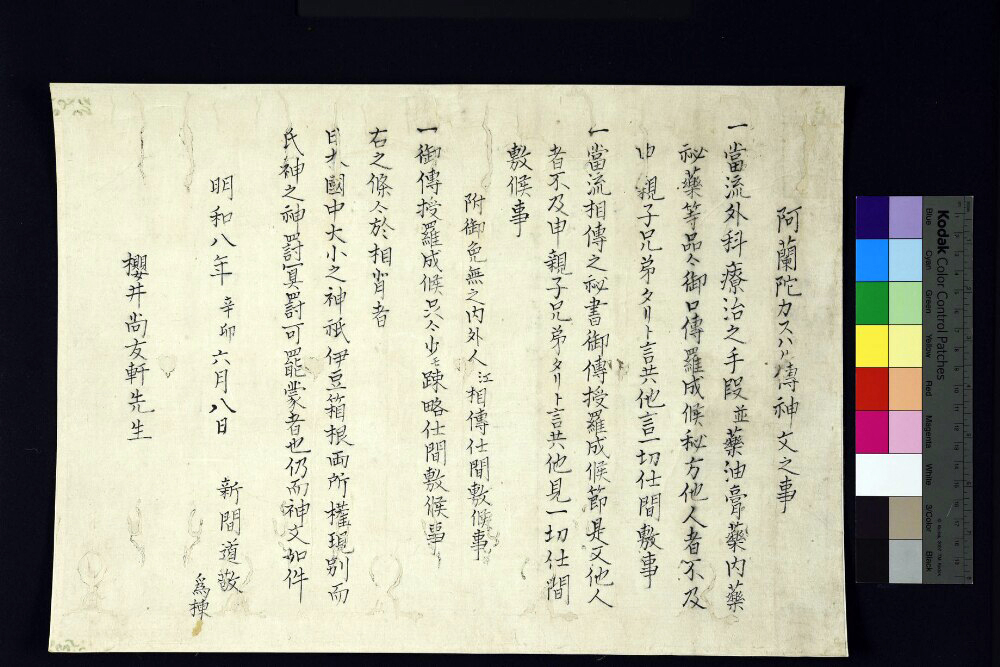 阿蘭陀カスハル傳神文之事
一當流外科療治之手段並藥油膏藥内藥
秘藥等品々御口傳羅成候秘方他人者不及
申 親子兄弟タリト言共他言一切仕間敷事
一當流相傳之秘書御傳授羅成候節是又他人
者不及申親子兄弟タリト言共他見一切仕間
敷候事
附御免無之内外人江相傳仕間敷候事
一御傳授羅成候只今少モ踈略仕間敷候事
右之條々於相背者
日本國中大小之神祇伊豆箱根両所權現別而
氏神之神罸冥罸可罷蒙者也仍而神文如件
明和八年辛卯六月八日 新間道敬
為揀
櫻井尚友軒先生
Kodak Color Control Patches
Blue
Cyan
Green
Yellow
Red
Magenta
White
3/Color
Black